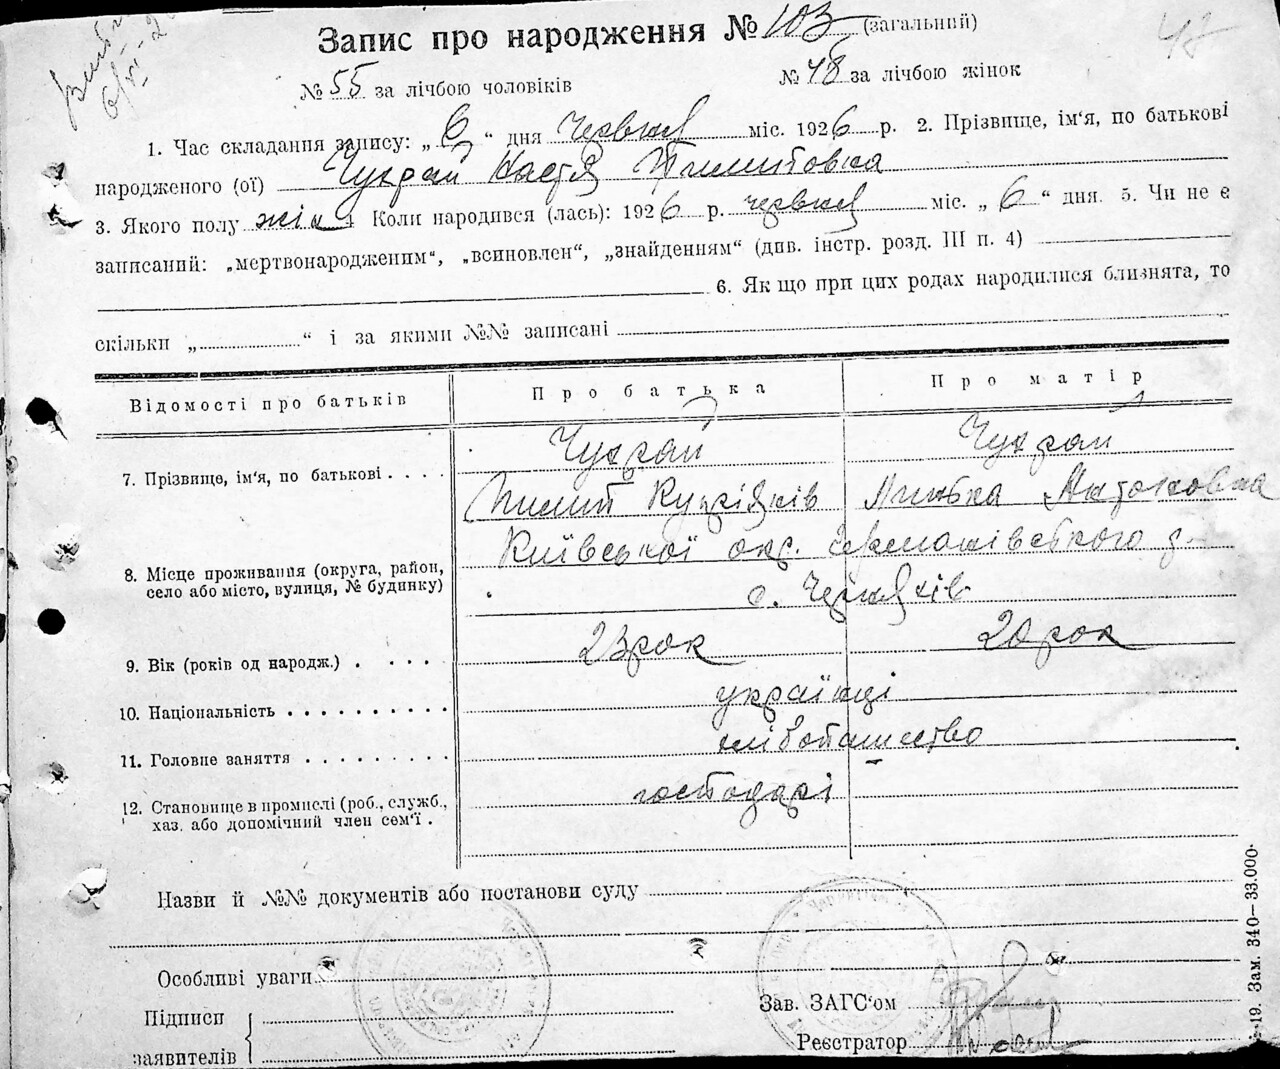 Запис про народження № 103 (загальний)
№ 55 за лічбою чоловіків № 48 за лічбою жінок
1. Час складання запису: „ 6 “ дня червня міс. 1926 р. 2. Прізвище, ім'я, по батькові
народженого (ої) Чухрай Настя Пилиповна
3. Якого полу жін 4 Коли народився (лась): 1926 р. червня міс. „ 6 “ дня. 5. Чи не є
записаний: „мертвонародженим“, „всиновлен“, „знайденням“ (див. інстр. розд. III п. 4)
6. Як що при цих родах народилися близнята, то
скільки „ “ і за якими №№ записані
Відомості про батьків Про батька Про матір
7. Прізвище, ім'я, по батькові . . . . Чухрай Чухрай
Пилип Антоновна
8. Місце проживання (округа, район, село або місто, вулиця, № будинку) Київської окр. Германівського р.
с. Черняхів
9. Вік (років од народж.) . . . . 23 рок 20 рок
10. Національність . . . . . . . . . . українці
11. Головне заняття . . . . . . . . . хлібопашество
12. Становище в промислі (роб., служб., хаз. або допомічний член сем'ї . господарі
Назви й №№ документів або постанови суду
Особливі уваги
Підписи
заявителів
Зав. ЗАГС'ом
Реєстратор
19. Зам. 340—33.000.